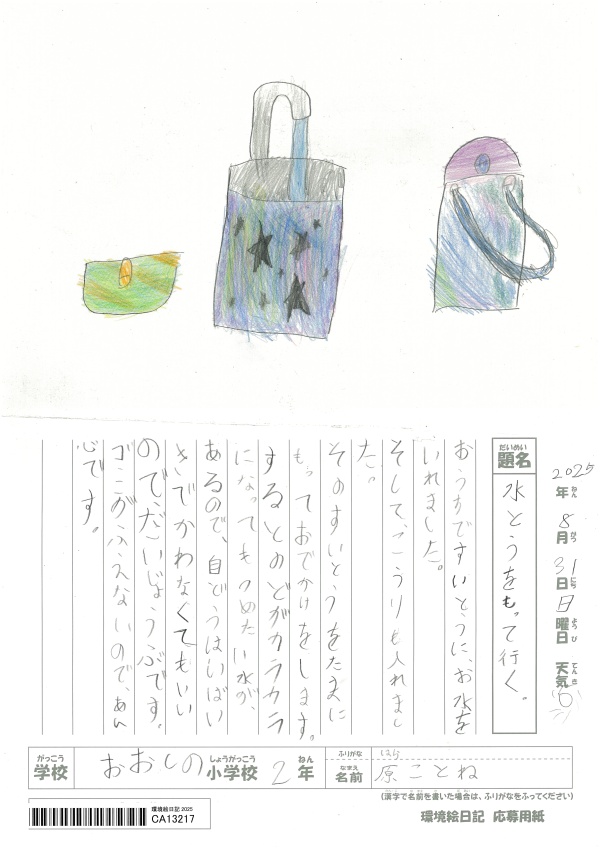 2025年8月31日日曜日 天気
ねん がつ にち ようび てんき
だいめい
題名 水とうをもって行く。
おうちですいとうに、お水を
いれました。
そして、こうりも入れまし
た。
そのすいとうをたまに
もっておでかけをします。
するとのどがカラカラ
になってもつめたい水が、
あるので、自どうはいばい
きでかわなくてもいい
のでだいじょうぶです。
ゴミがふえないので、あん
心です。
がっこう
学校 おおしの
しょうがっこう
小学校 2
ねん
年
ふりがな はら
なまえ
名前 原ことね
(漢字で名前を書いた場合は、ふりがなをふってください)
環境絵日記 2025
CA13217
環境絵日記 応募用紙